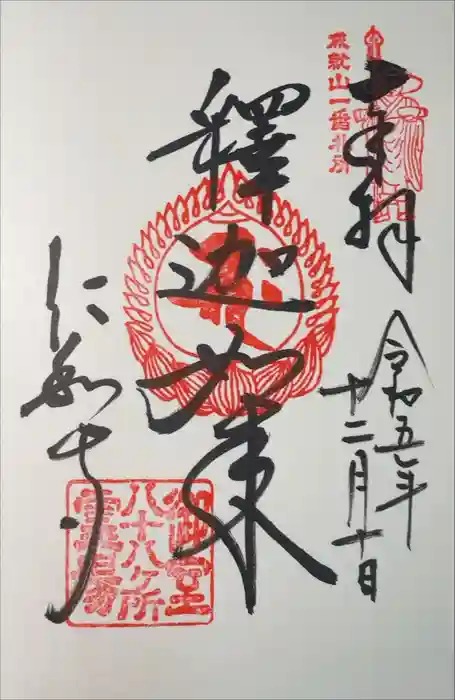 成就山一番札所
奉拝
令和五年
十二月十日
釋迦如来
仁和寺
御室
八十八ヶ所
靈場